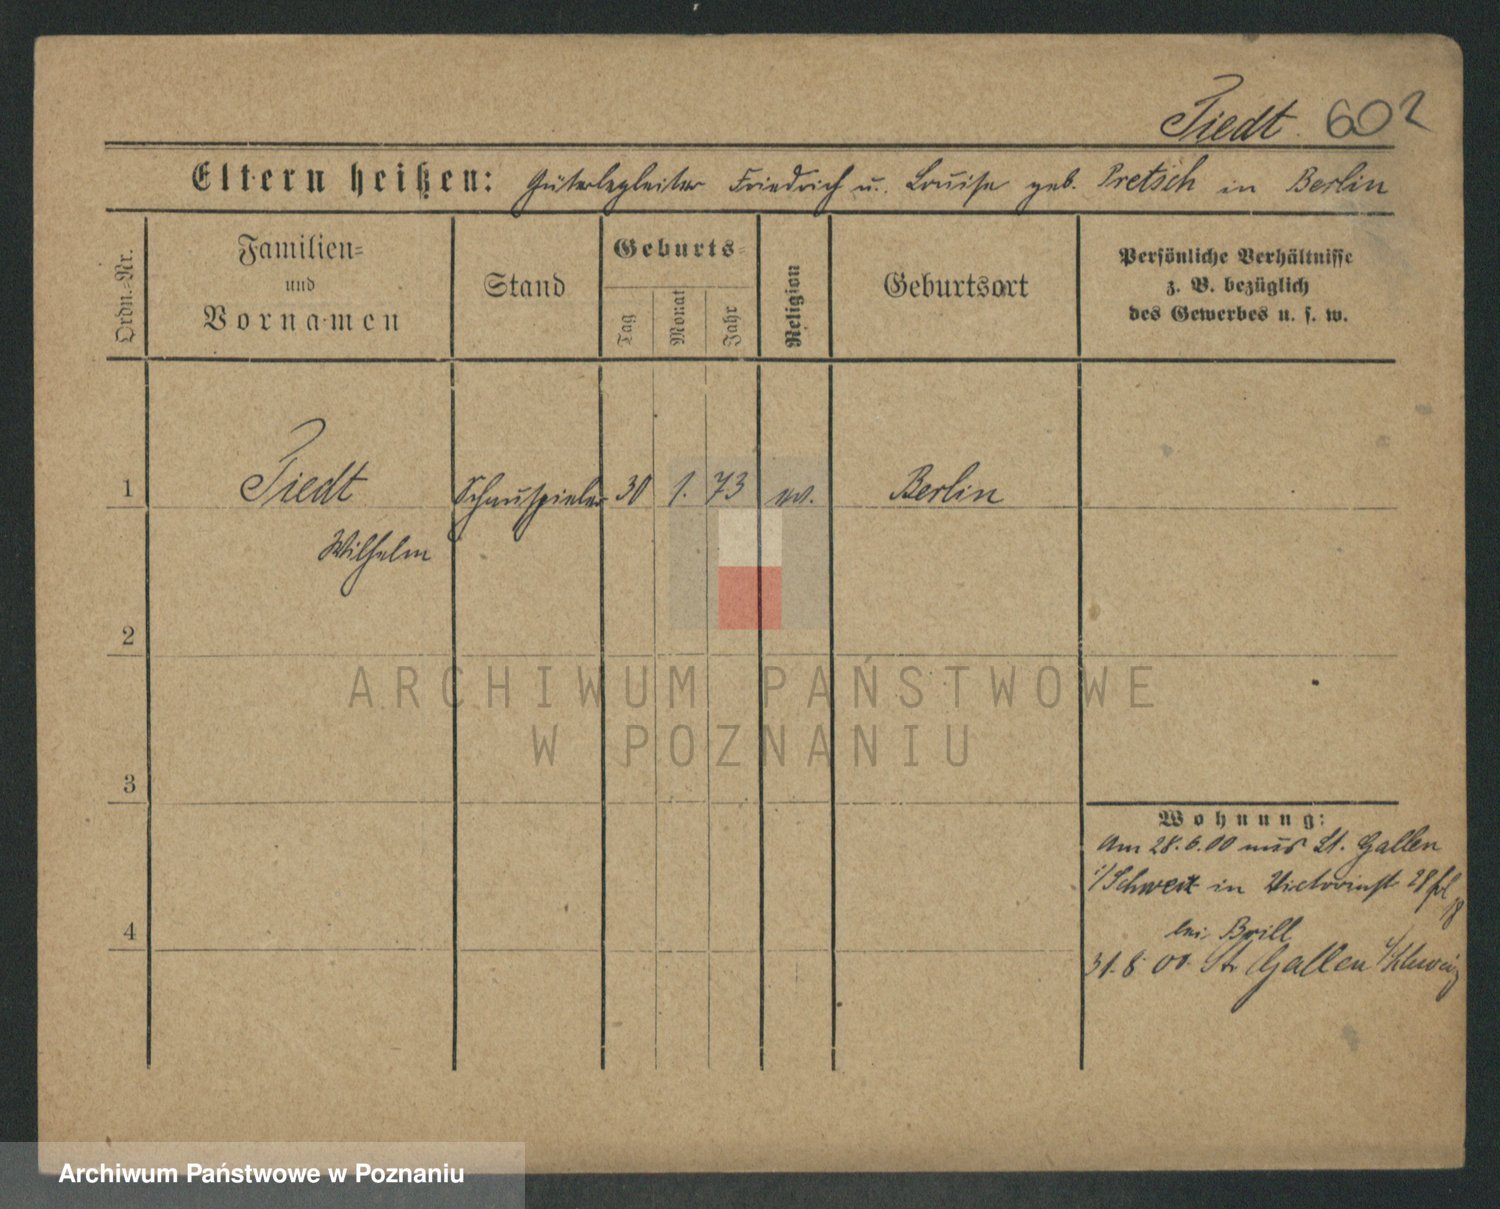 Tiedt. 602
Eltern heißen: Güterbegleiter Friedrich u. Louise geb. Pretsch in Berlin
Ordn.-Nr.
Familien-
und
Vornamen
Stand
Geburts-
Tag
Monat
Jahr
Religion
Geburtsort
Persönliche Verhältnisse
z. B. bezüglich
des Gewerbes u. s. w.
1 Tiedt Schauspieler 30 1. 73 ev. Berlin
Wilhelm
2
ARCHIWUM PAŃSTWOWE
W POZNANIU
3
Wohnung:
Am 28.6.00 aus St. Gallen
i/Schweiz in Victoriast 28
bei Brill
4
31.8.00 St. Gallen i/Schweiz
Archiwum Państwowe w Poznaniu